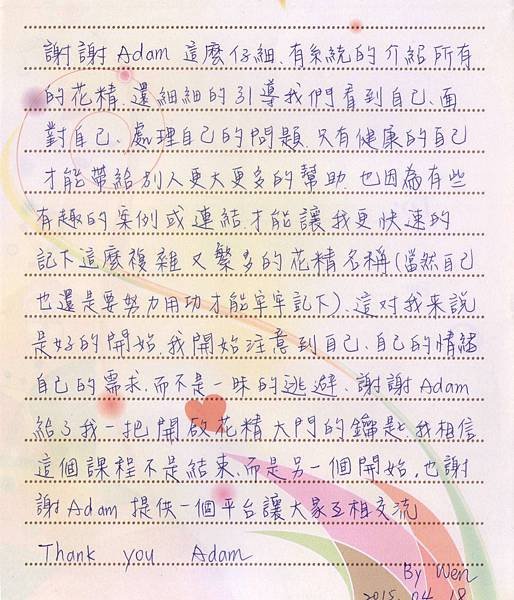 謝謝 Adam 這麼仔細、有系統的介紹所有
的花精、還細細的引導我們看到自己、面
對自己、處理自己的問題、只有健康的自己
才能帶給別人更大更多的幫助、也因為有些
有趣的案例或連結、才能讓我更快速的
記下這麼複雜又繁多的花精名稱(當然自己
也還是要努力用功才能牢牢記下)、這对我来说
是好的開始、我開始注意到自己、自己的情緒
自己的需求、而不是一昧的逃避、謝謝 Adam
給了我一把開啟花精大門的鑰匙、我相信
這個課程不是結束、而是另一個開始、也謝
謝 Adam 提供一個平台讓大家互相交流
Thank you Adam
By Wen
2015. 04. 18